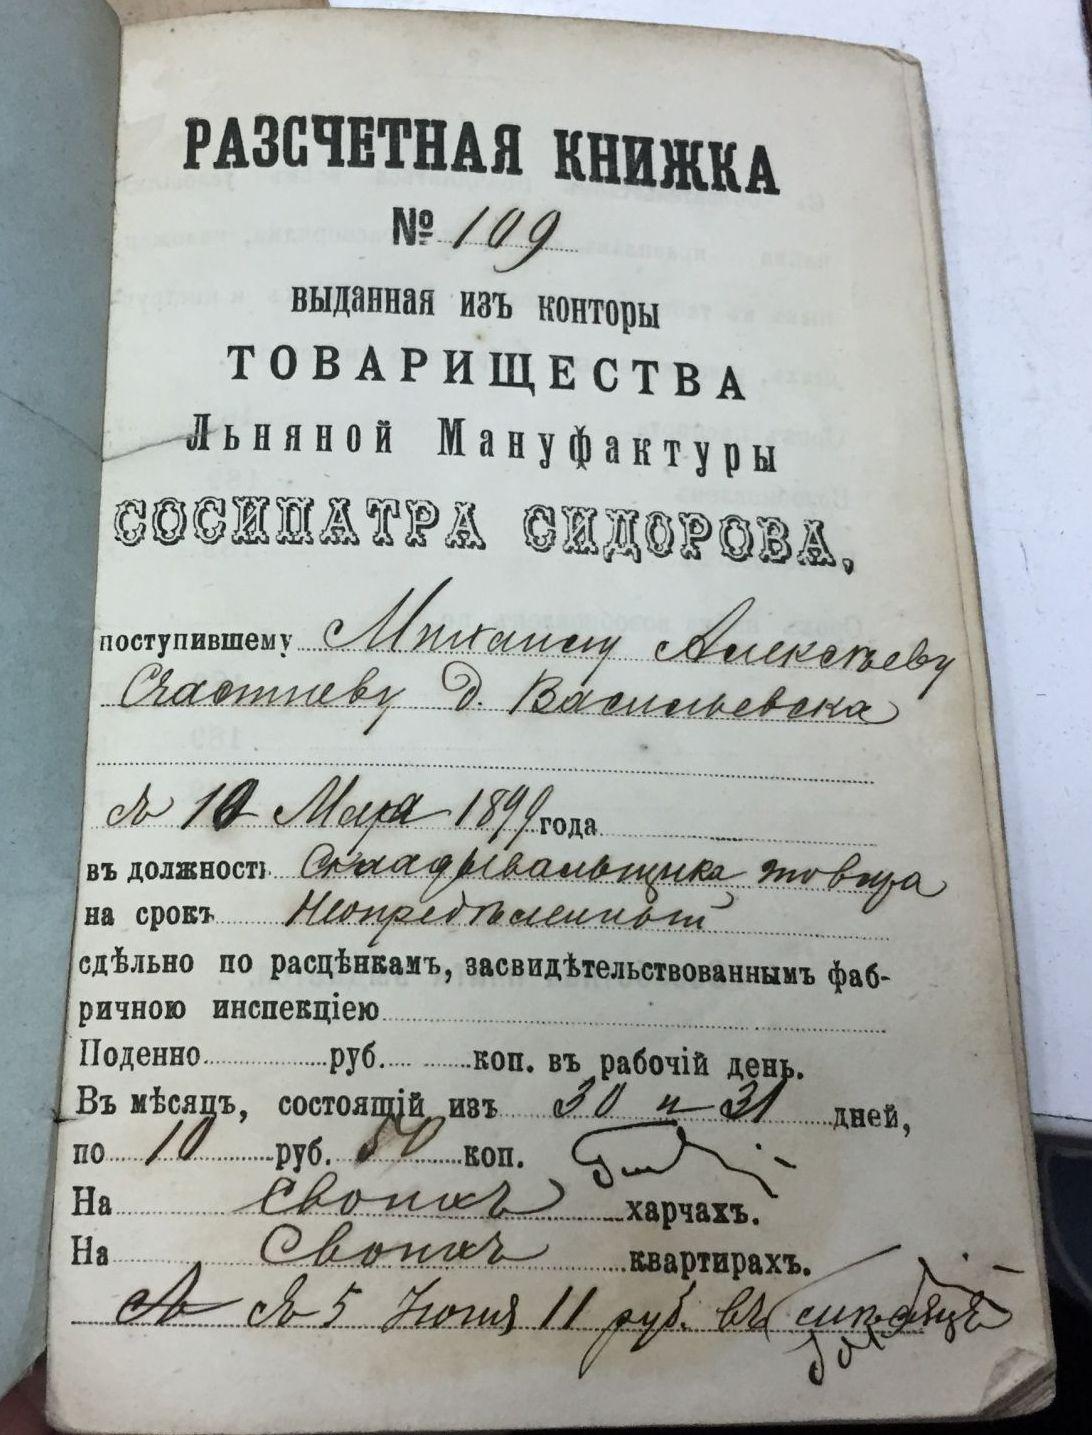 РАЗСЧЕТНАЯ КНИЖКА
№ 109
выданная изъ конторы
ТОВАРИЩЕСТВА
Льняной Мануфактуры
СОСИПАТРА СИДОРОВА,
поступившему Михаилу Алексѣеву
Счастневу д. Васильевска
съ 10 Мая 1899 года
въ должность Складывальщика товара
на срокъ Неопредѣленный
сдѣльно по расцѣнкамъ, засвидѣтельствованнымъ фаб-
ричною инспекціею
Поденно руб. коп. въ рабочій день.
Въ мѣсяцъ, состоящій изъ 30 и 31 дней,
по 10 руб. 50 коп.
На Своихъ харчахъ.
На Своихъ квартирахъ.
съ 5 Іюня 11 руб. въ мѣсяцъ